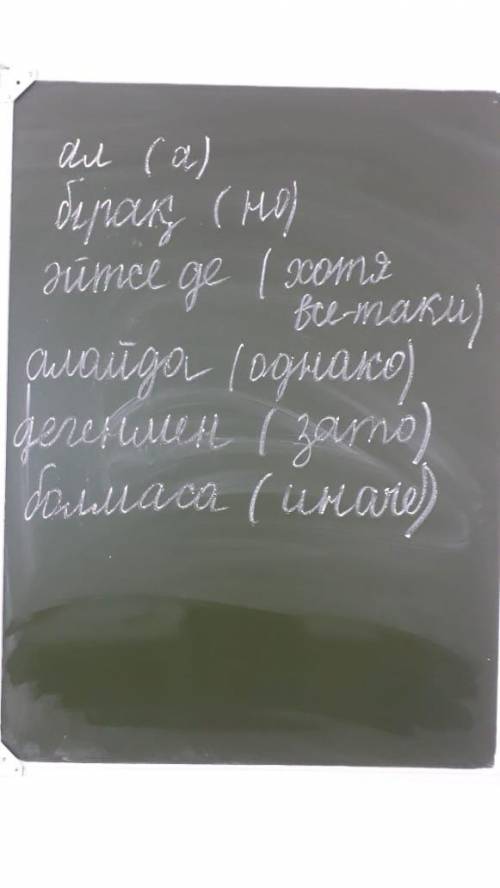 ал (а)
бірақ (но)
әйтсе де (хотя
все-таки)
алайда (однако)
дегенмен (зато)
болмаса (иначе)